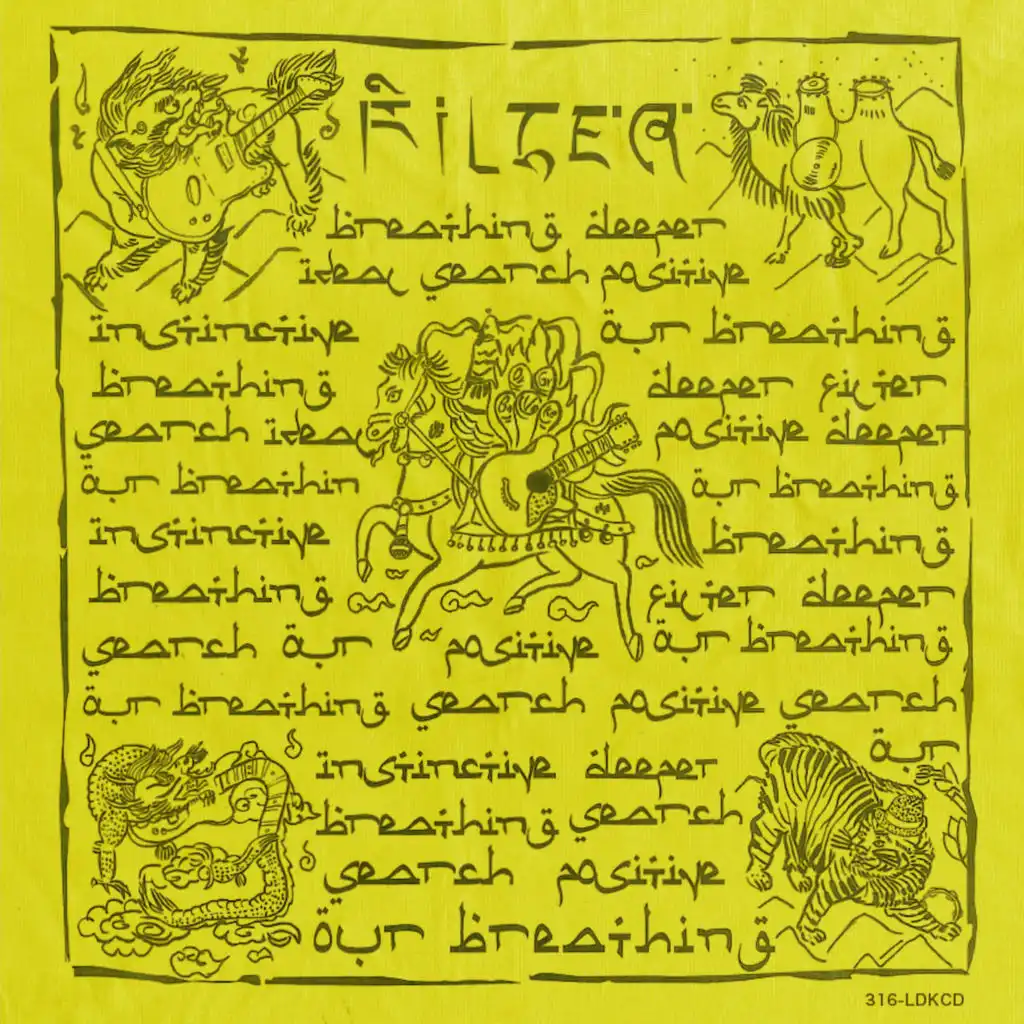 FILTER
breathing deeper
ideal search positive
instinctive our breathing
breathing deeper filter
search ideal positive deeper
our breathin our breathing
instinctive breathing
breathing filter deeper
search our positive our breathing
our breathing search positive search
our
instinctive deeper
breathing search
search positive
our breathing
316-LDKCD